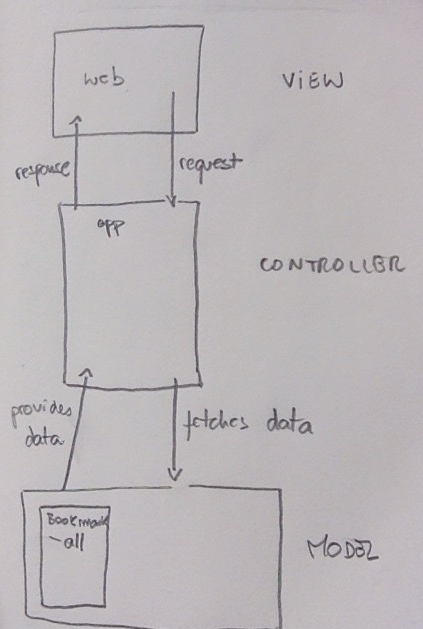 web
VIEW
response
request
app
CONTROLLER
provides
data
fetches data
Bookmark
-all
MODEL